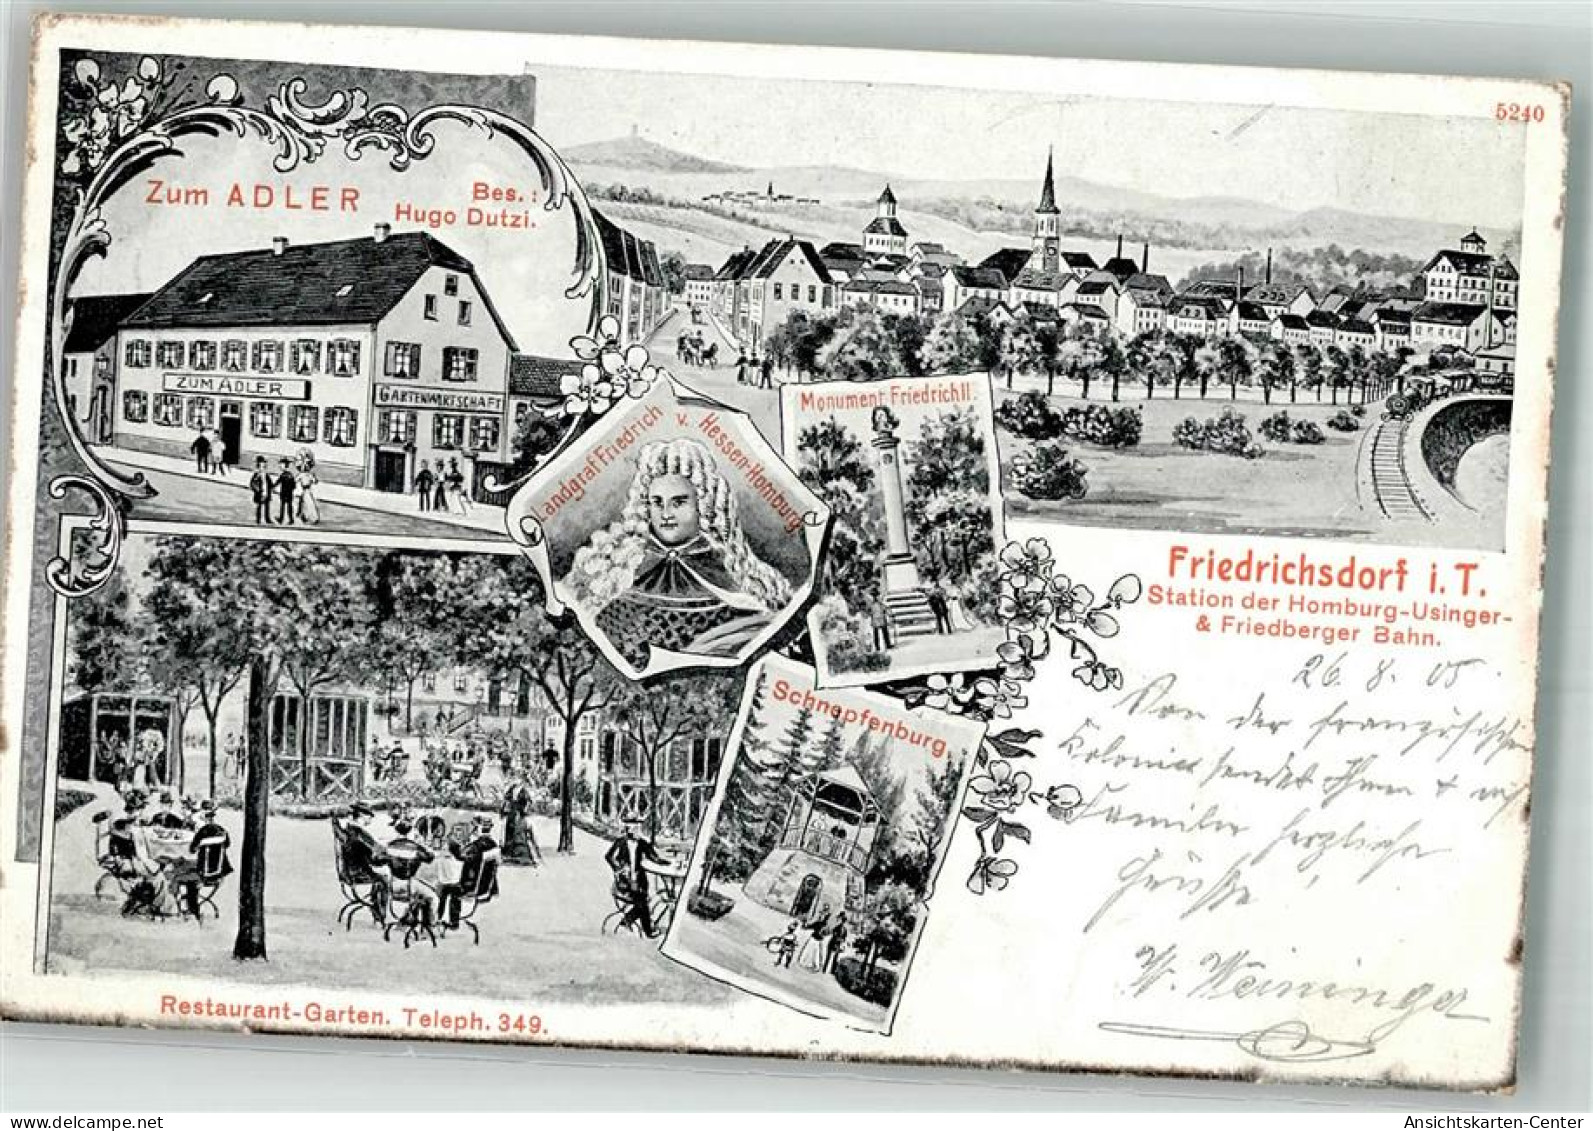 5240
Zum ADLER
Bes.:
Hugo Dutzi.
ZUM ADLER
GARTENWIRTSCHAFT
Landgraf Friedrich v. Hessen-Homburg
Monument Friedrich II.
Friedrichsdorf i. T.
Station der Homburg-Usinger-
& Friedberger Bahn.
26. 8. 05.
Von der französischen
Kolonie sendet Ihnen +
Familie herzliche
Grüsse!
W. Weininger
Schnepfenburg.
Restaurant-Garten. Teleph. 349.
Ansichtskarten-Center